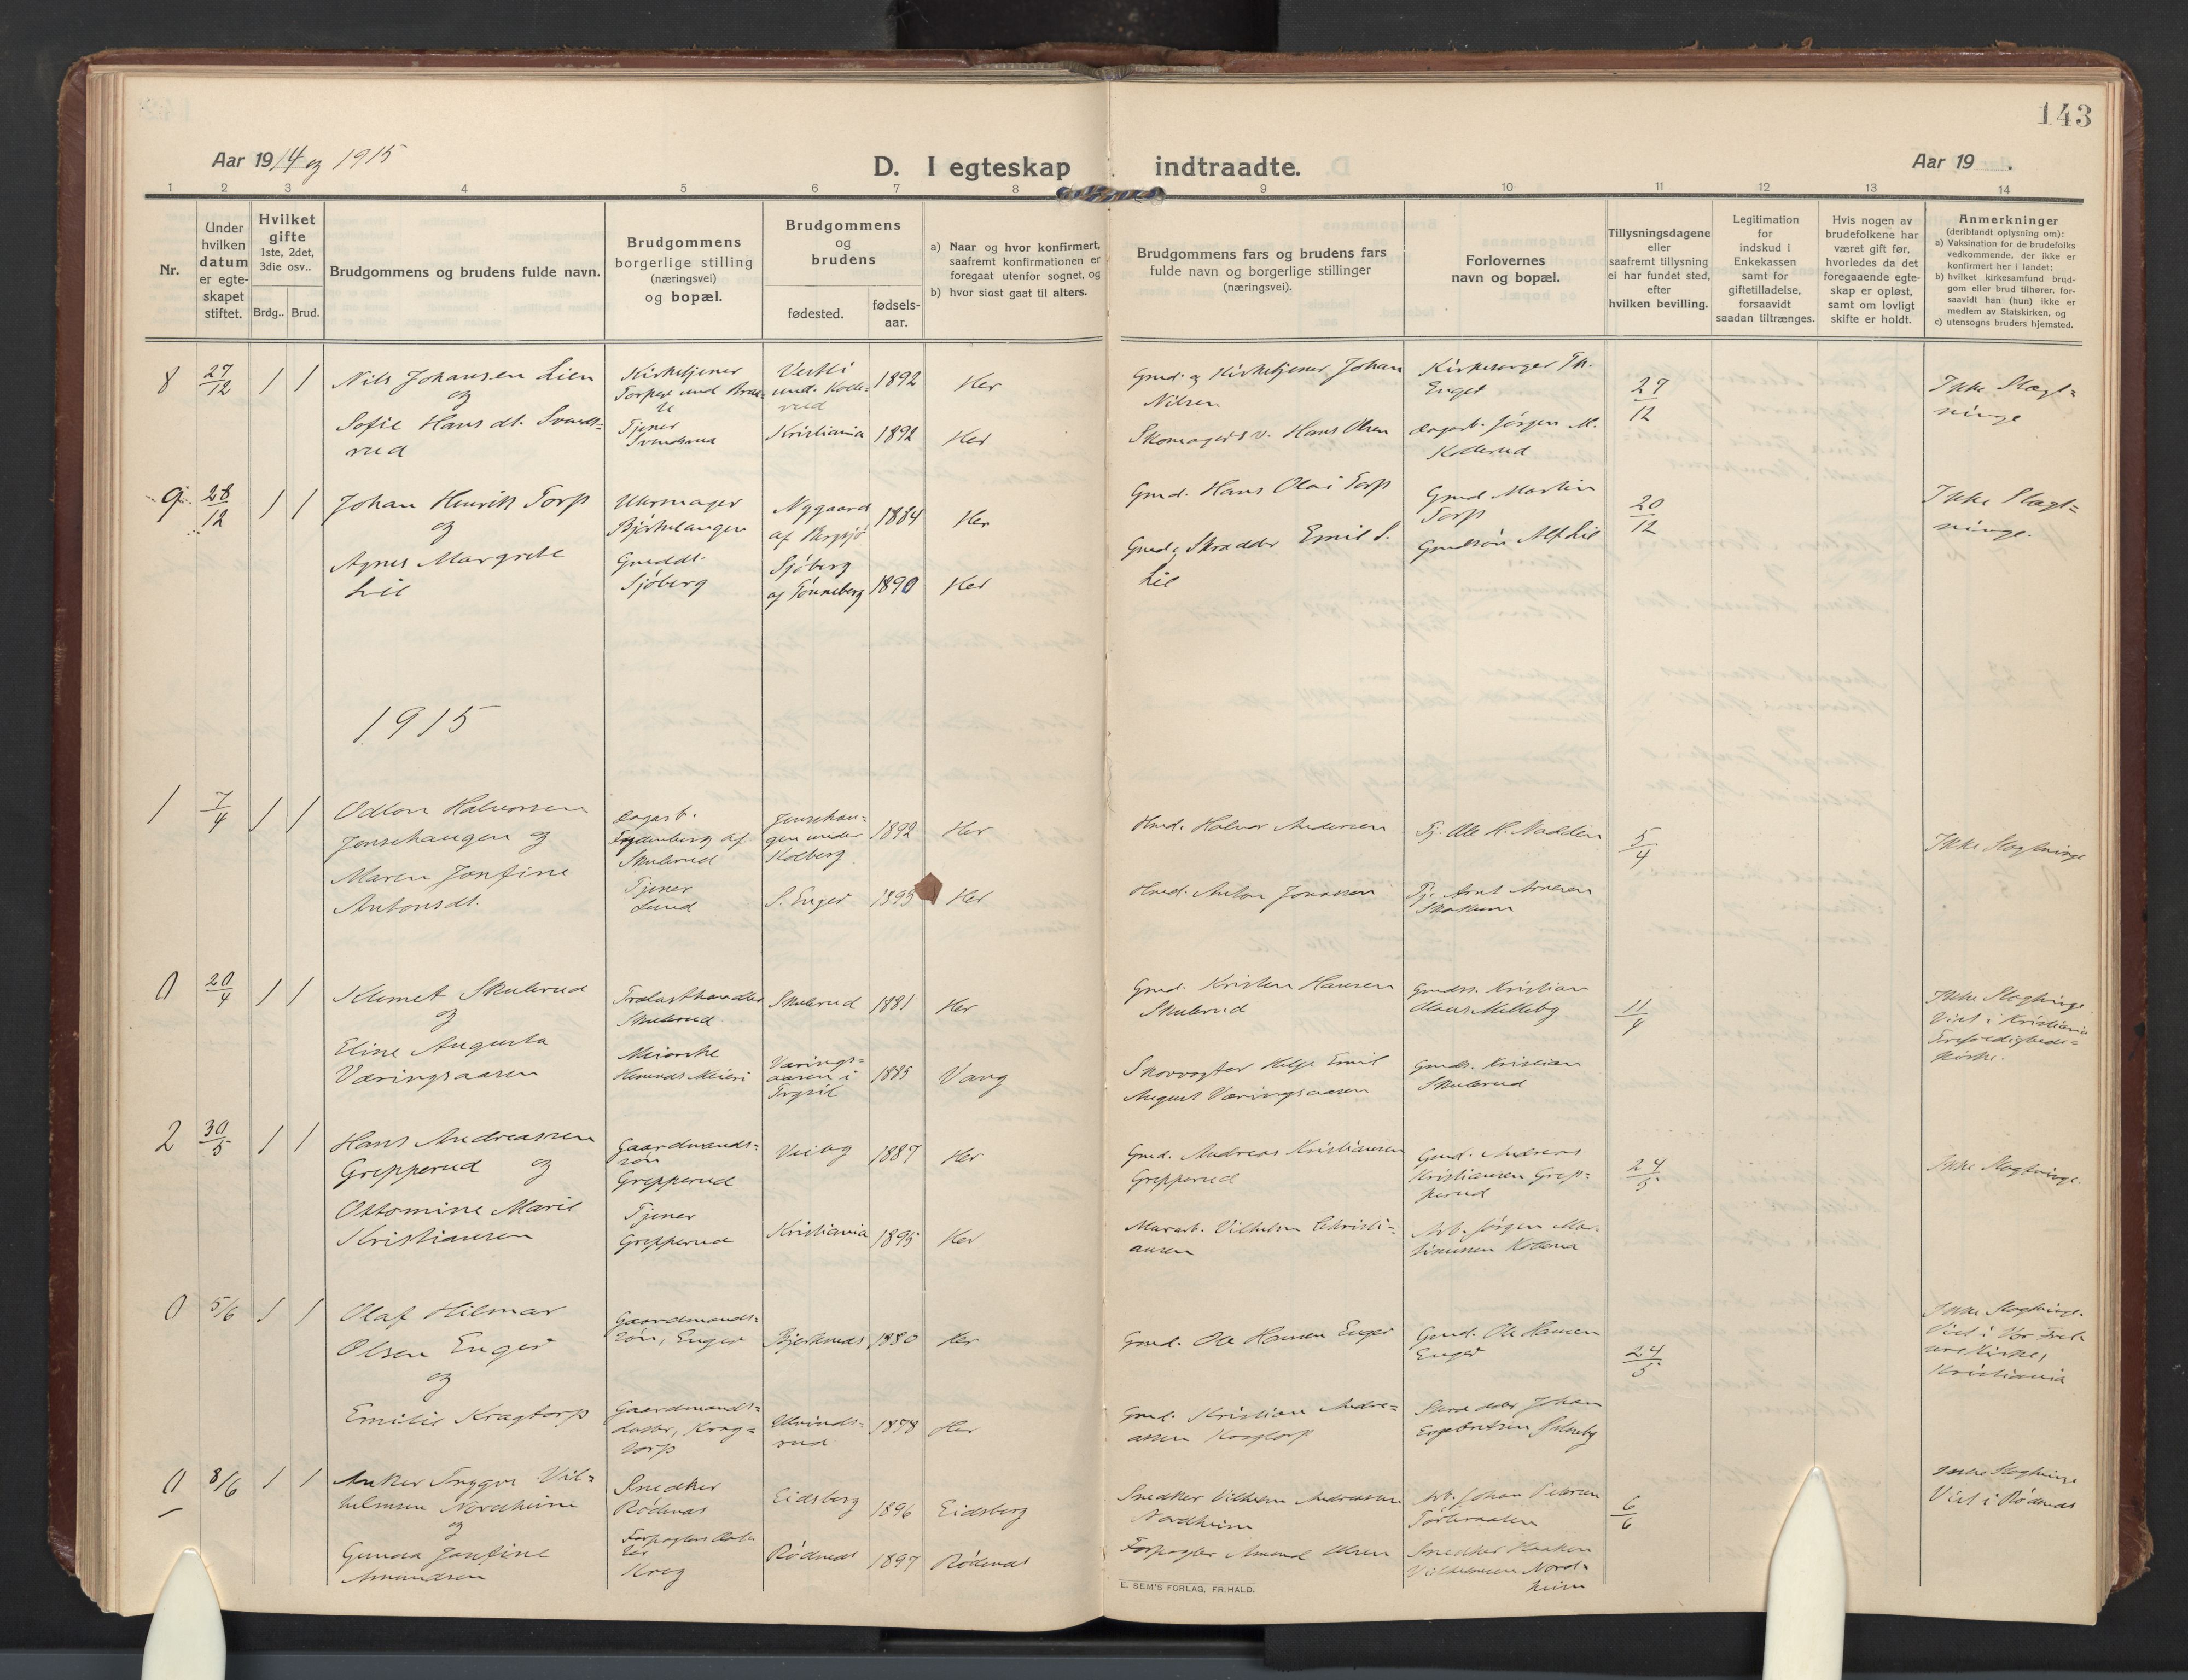 143
Aar 1914 og 1915
D. I egteskap indtraadte.
Aar 19 .
1 2 3 4 5 6 7 8 9 10 11 12 13 14
Nr.
Under
hvilken
datum
er egte-
skapet
stiftet.
Hvilket
gifte
1ste, 2det,
3die osv..
Brdg.. Brud.
Brudgommens og brudens fulde navn.
Brudgommens
borgerlige stilling
(næringsvei)
og bopæl.
Brudgommens
og
brudens
fødested.
fødsels-
aar.
a) Naar og hvor konfirmert,
saafremt konfirmationen er
foregaat utenfor sognet, og
b) hvor sidst gaat til alters.
Brudgommens fars og brudens fars
fulde navn og borgerlige stillinger
(næringsvei).
Forlovernes
navn og bopæl.
Tillysningsdagene
eller
saafremt tillysning
ei har fundet sted,
efter
hvilken bevilling.
Legitimation
for
indskud i
Enkekassen
samt for
giftetilladelse,
forsaavidt
saadan tiltrænges.
Hvis nogen av
brudefolkene har
været gift før,
hvorledes da det
foregaaende egte-
skap er opløst,
samt om lovligt
skifte er holdt.
Anmerkninger
(deriblandt oplysning om):
a) Vaksination for de brudefolks
vedkommende, der ikke er
konfirmert her i landet;
b) hvilket kirkesamfund brud-
gom eller brud tilhører, for-
saavidt han (hun) ikke er
medlem av Statskirken, og
c) utensogns bruders hjemsted.
8 27/12 1 1
Nils Johansen Lien
og
Sofie Hansdt. Svends-
rud
Kirketjener
Tjener
Vestli
und. Kolle-
rud
1892 Her
Kristiania 1892 Her
Gmd. og Kirketjener Johan
Nilsen
Skomagersv. Hans Olsen
Kirkesanger Th.
Enger
Dagarb. Jørgen M.
Kollerud
27/12
Ikke Slægt-
ninge
9. 28/12 1 1
Johan Henrik Torp
og
Agnes Margrete
Lie
Uhrmager
Bjørkelangen
Gmddt.
Sjøberg
Nygaard
1884 Her
Sjøberg
af Tønneberg 1890 Her
Gmd. Hans Olai Torp
Gmd. og Skrædder Emil S.
Lie
Gmd Martin
Torp
Gmdsøn Alf Lie
20/12
Ikke Slægt-
ninge.
1915
1 7/4 1 1
Odlon Halvorsen
Jensehaugen og
Maren Josefine
Antonsdt.
Dagarb.
Skulerud
Tjener
Lund
Jensehau-
gen under
Kolberg
1892 Her
S. Enger 1895 Her
Hmd. Halvor Andersen
Hmd. Anton Jonassen
Tj. Ole H. Nadden
Tj. Arnt Arnesen
5/4
Ikke Slægtninge
0 20/4 1 1
Klemet Skulerud
og
Eline Augusta
Væringsaasen
Trælasthandler
Skulerud
Meierske
Hemnes Meieri
Skulerud 1881 Her
Værings-
aasen i
Trysil
1885 Vang
Gmd. Kristen Hansen
Skulerud
Skovvogter Helge Emil
August Væringsaasen
Gmdss. Kristian
Gmds. Kristian
Skulerud
11/4
Ikke Slægtninge.
Viet i Kristiania
Trefoldigheds-
kirke.
2 30/5 1 1
Hans Andreassen
Grepperud og
Ottomine Marie
Kristiansen
Gaardmands-
søn
Grepperud
Tjener
Grepperud
Veiby 1887 Her
Kristiania 1895 Her
Gmd. Andreas Kristiansen
Grepperud
Murarb. Vilhelm Christi-
ansen
Gmd. Andreas
Kristiansen Grep-
perud
Arb. Jørgen Mar-
24/5
Ikke Slægtninge.
0 5/6 1 1
Olaf Hilmar
Olsen Enger
og
Emilie Kragtorp
Gaardmands-
søn, Enger
Gaardmands-
datter, Krag-
torp
Bjerknes 1880 Her
1878 Her
Gmd. Ole Hansen Enger
Gmd. Kristian Andre-
assen Kragtorp
Gmd. Ole Hansen
Enger
Skrædder Johan
24/5
Ikke Slægtninge.
Viet i Vor Frel-
sers Kirke,
Kristiania
0 8/6 1 1
Anker Trygve Vil-
helmsen Nordheim
og
Gunda Josefine
Amundsen
Snedker
Rødenes
Krog
Eidsberg 1896 Eidsberg
Rødenes 1897 Rødenes
Snedker Vilhelm Andreassen
Nordheim
Forpagter Amund Olsen
Arb. Johan Petersen
Snedker Haakon
Vilhelmsen Nord-
heim
6/6
Ikke Slægtninge
Viet i Rødenes
E. SEM'S FORLAG, FR.HALD.